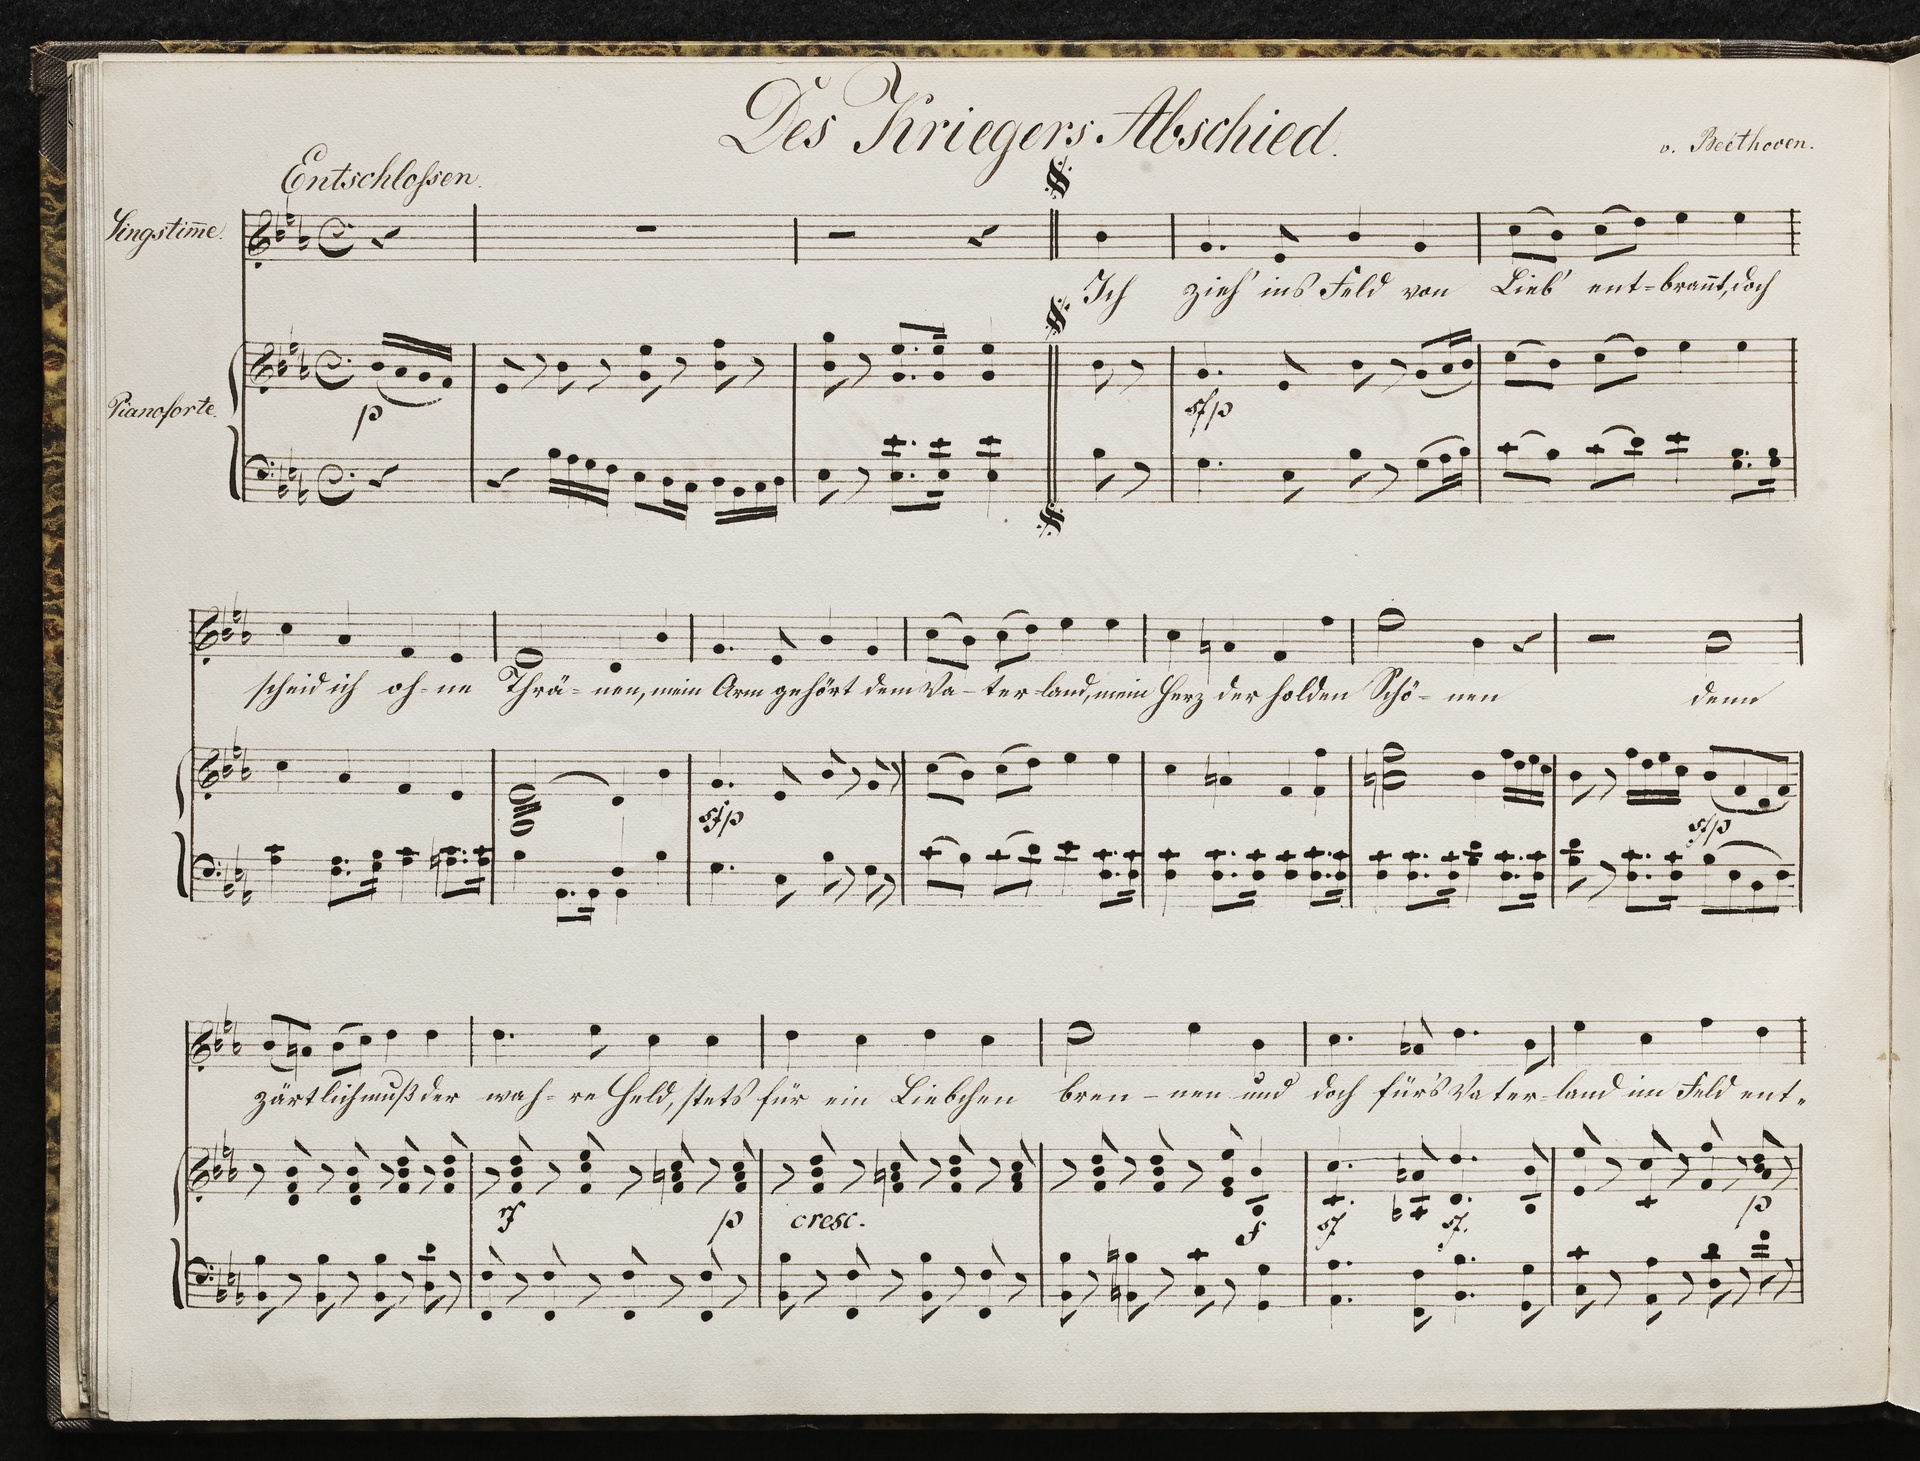 Des Kriegers Abschied.
v. Beethoven.
Entschloſsen.
Singstim̅e.
Ich zieh' ins Feld von Lieb' ent=bran̅t, doch
Pianoforte.
p
sfp
scheid ich oh=ne Thrä=nen, mein Arm gehört dem Va-ter-land, mein Herz der holden Schö=nen denn
sfp
sfp
zärtlich muß der wah=re Held, stets für ein Liebchen bren-nen und doch für's Vater=land im Feld ent=
rf p cresc. f sf sf. p